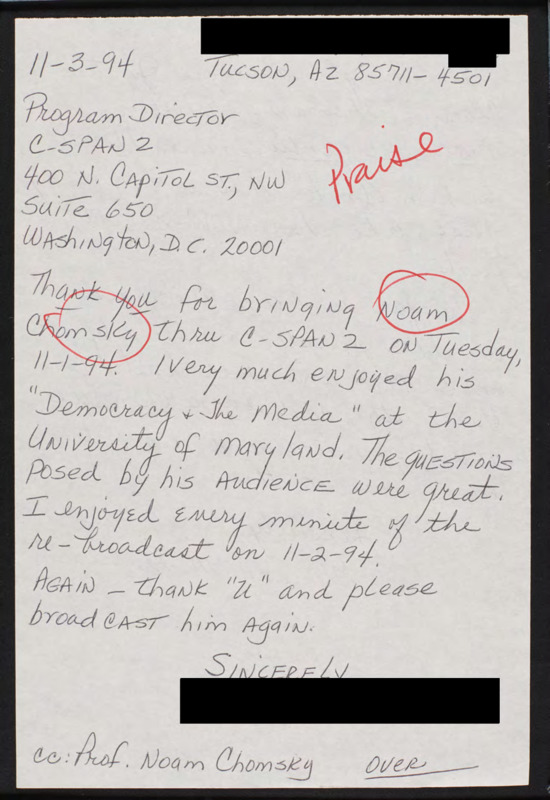 11-3-94 Tucson, AZ 85711-4501
Program Director
C-SPAN 2
400 N. Capitol St., NW
Praise
Suite 650
Washington, D.C. 20001
Thank you for bringing Noam
Chomsky thru C-SPAN 2 on Tuesday,
11-1-94. I very much enjoyed his
"Democracy + The Media" at the
University of Maryland. The questions
posed by his audience were great.
I enjoyed every miniute of the
re-broadcast on 11-2-94.
Again - thank "U" and please
broadcast him again.
Sincerely
cc: Prof. Noam Chomsky OVER